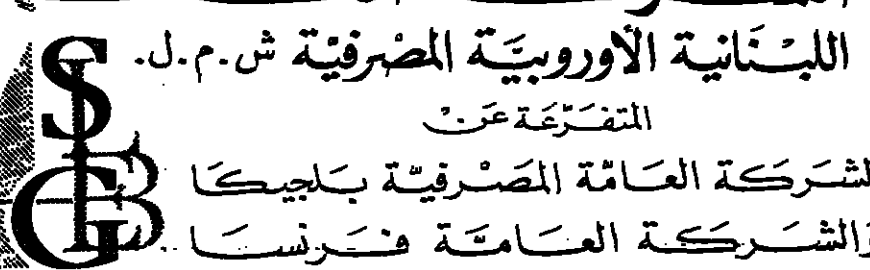 اللبْنَانية الأوروبيَّة المصْرفيّة ش.م.ل.
المتفَرّعَة عَنْ
الشَركَة العَامّة المَصْرفيّة بَلجيكَا
وَالشَركَة العَامَّة فَرنسَا
SLGB